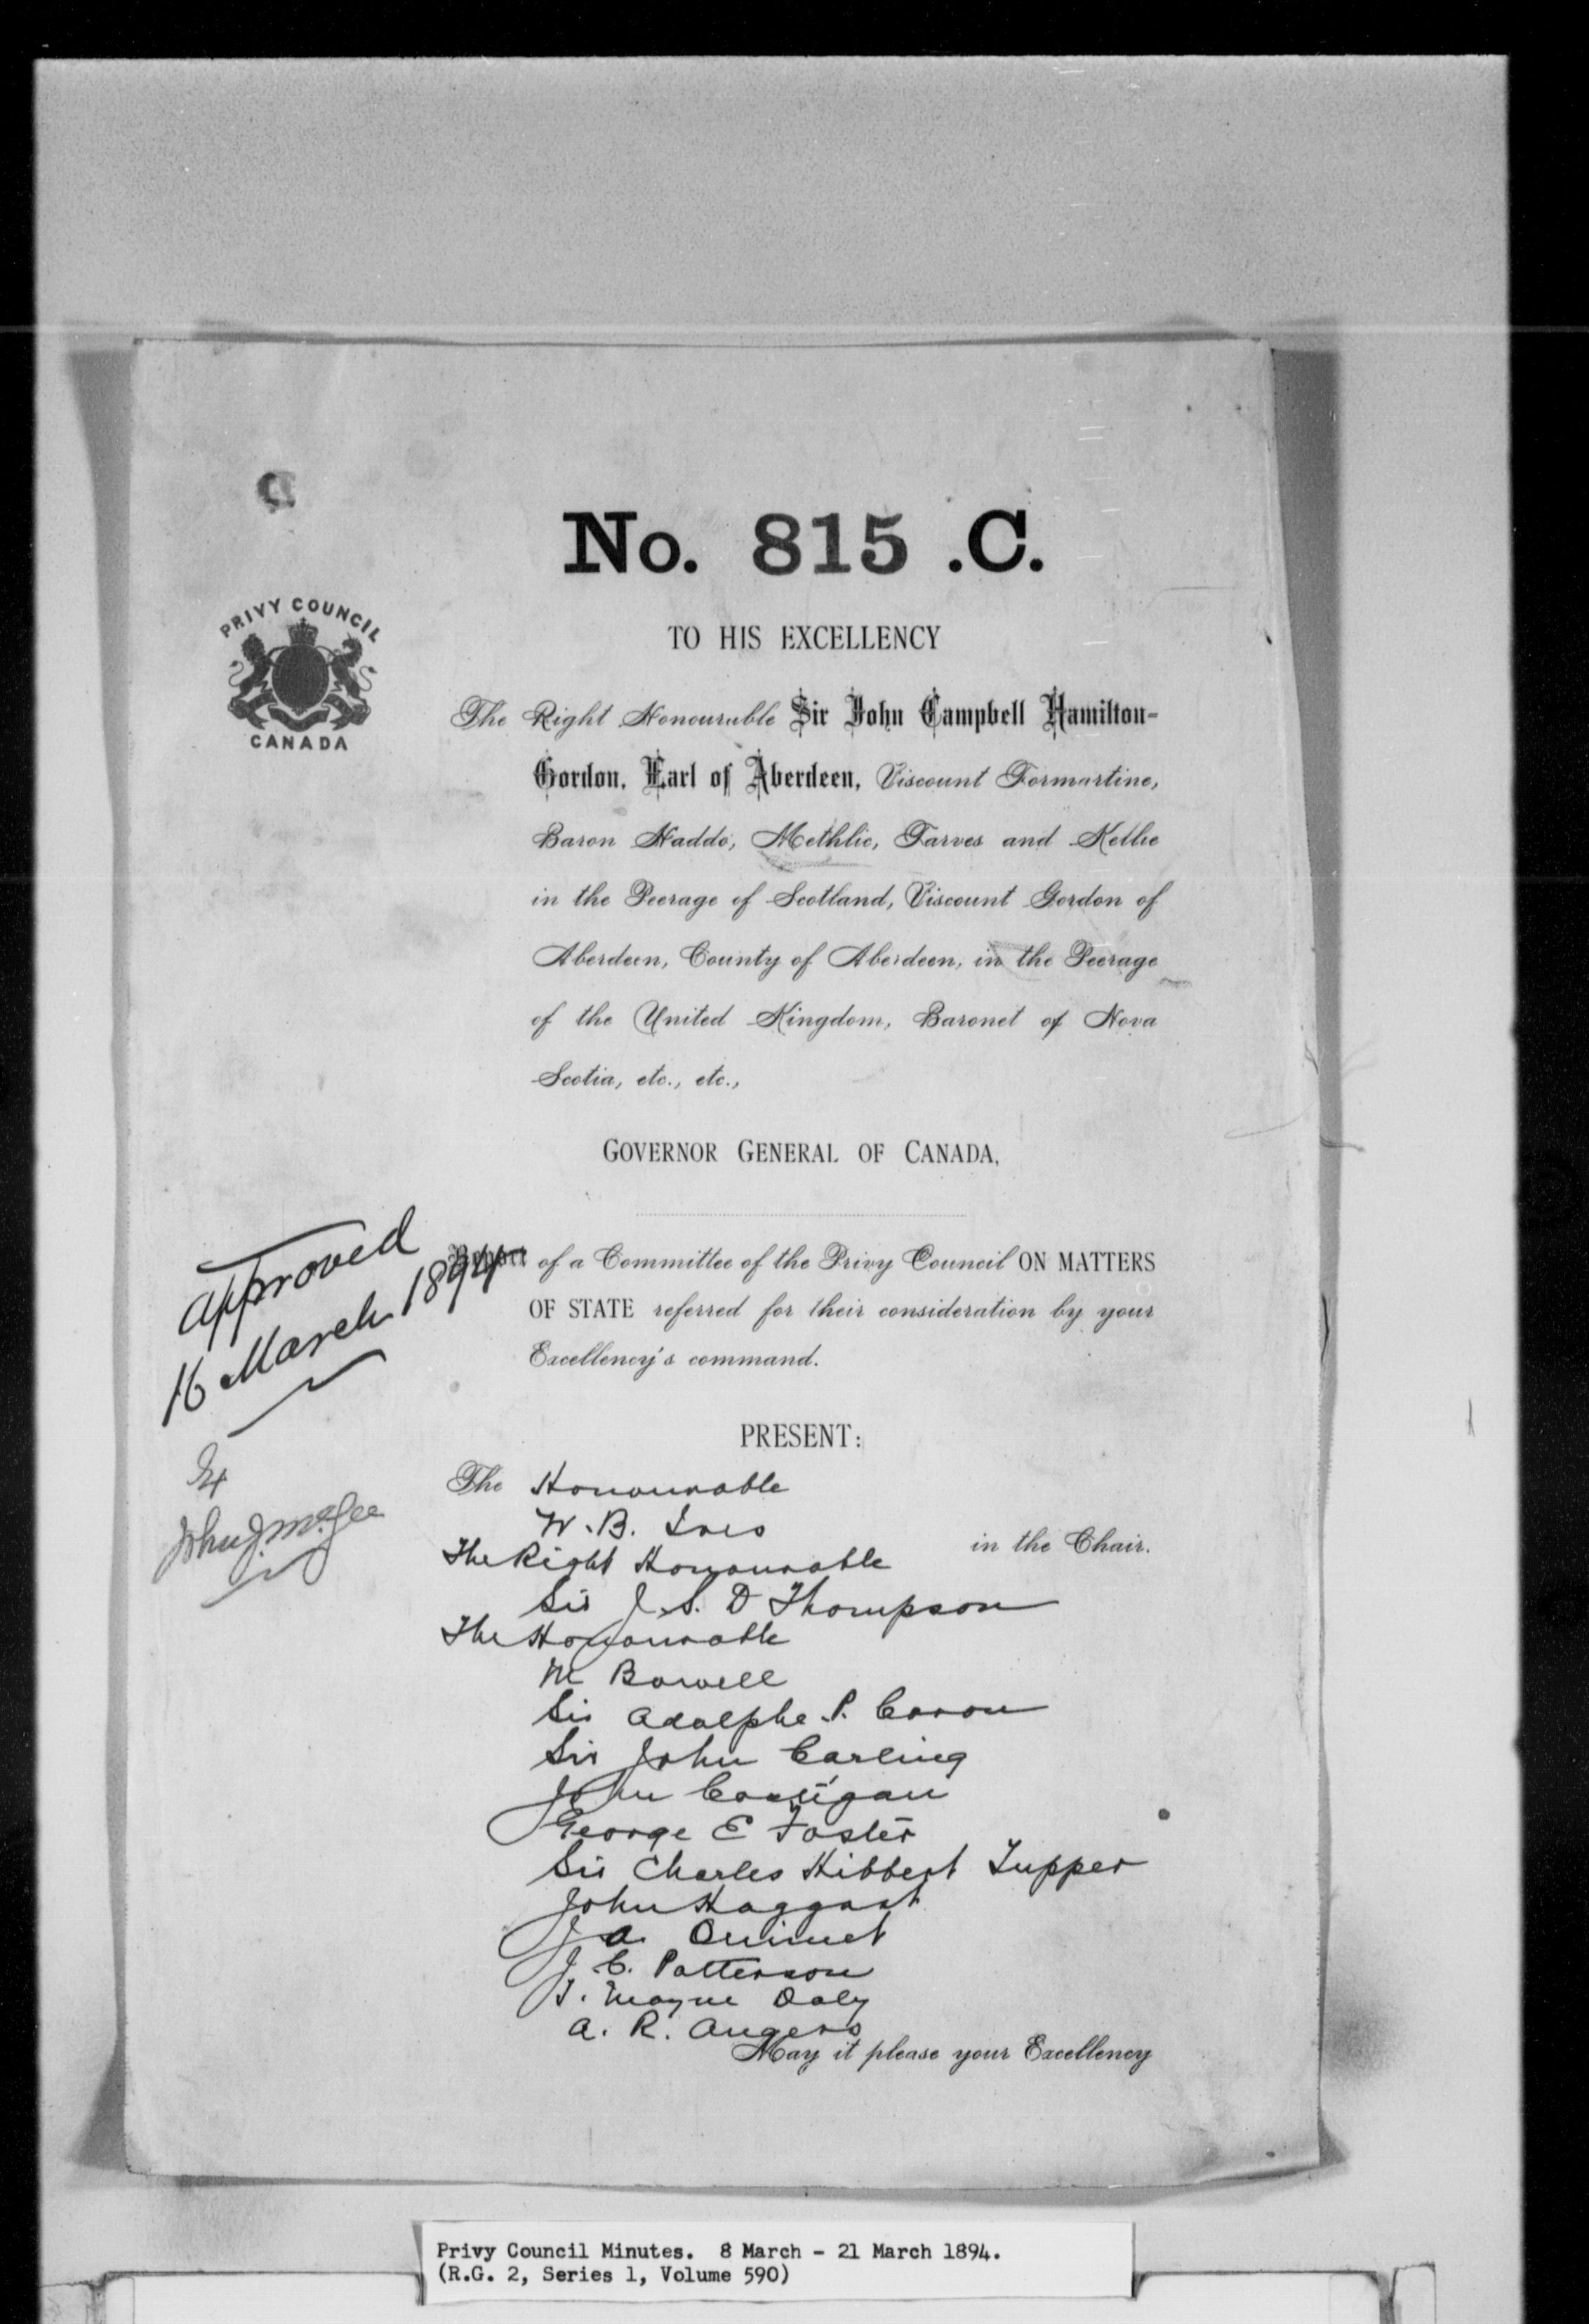 No. 815 .C.
PRIVY COUNCIL
CANADA
TO HIS EXCELLENCY
The Right Honourable Sir John Campbell Hamilton-
Gordon, Earl of Aberdeen, Viscount Formartine,
Baron Haddo, Methlic, Tarves and Kellie
in the Peerage of Scotland, Viscount Gordon of
Aberdeen, County of Aberdeen, in the Peerage
of the United Kingdom, Baronet of Nova
Scotia, etc., etc.,
GOVERNOR GENERAL OF CANADA,
approved
16 March 1894
Report of a Committee of the Privy Council ON MATTERS
OF STATE referred for their consideration by your
Excellency's command.
John J. McGee
PRESENT:
The Honourable
W. B. Ives
in the Chair.
The Right Honourable
Sir J. S. D Thompson
The Honourable
M Bowell
Sir Adolphe P. Caron
Sir John Carling
John Costigan
George E Foster
Sir Charles Hibbert Tupper
John Haggart
J. A. Ouimet
J. C. Patterson
T. Mayne Daly
A. R. Angers
May it please your Excellency
Privy Council Minutes. 8 March - 21 March 1894.
(R.G. 2, Series 1, Volume 590)